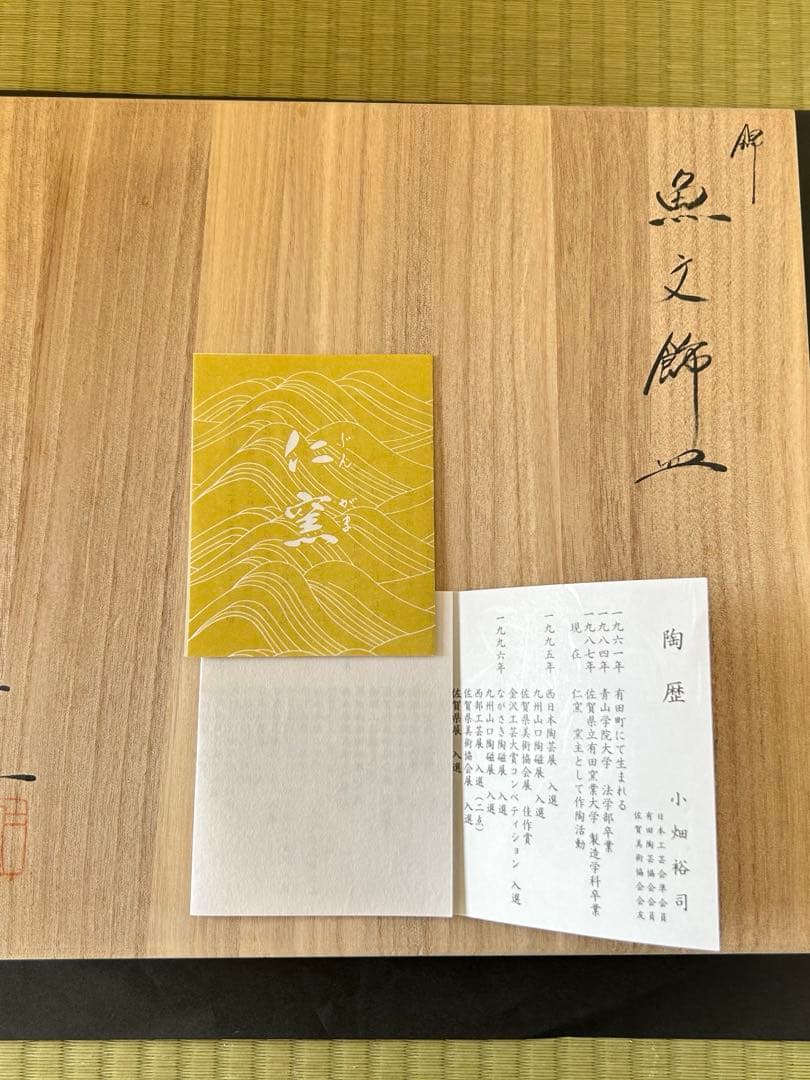 錦
魚文飾皿
仁窯
じんがま
陶歴
小畑裕司
日本工芸会準会員
有田陶芸協会会員
佐賀美術協会会友
一九六一年 有田町にて生まれる
一九八四年 青山学院大学 法学部卒業
一九八七年 佐賀県立有田窯業大学 製造学科卒業
現在 仁窯 窯主として作陶活動
一九九五年 西日本陶芸展 入選
九州山口陶磁展 入選
佐賀県美術協会展 佳作賞
金沢工芸大賞コンペティション 入選
ながさき陶磁展 入選
一九九六年 九州山口陶磁展 入選
西部工芸展 入選(二点)
佐賀県美術協会展 入選
佐賀県展 入選